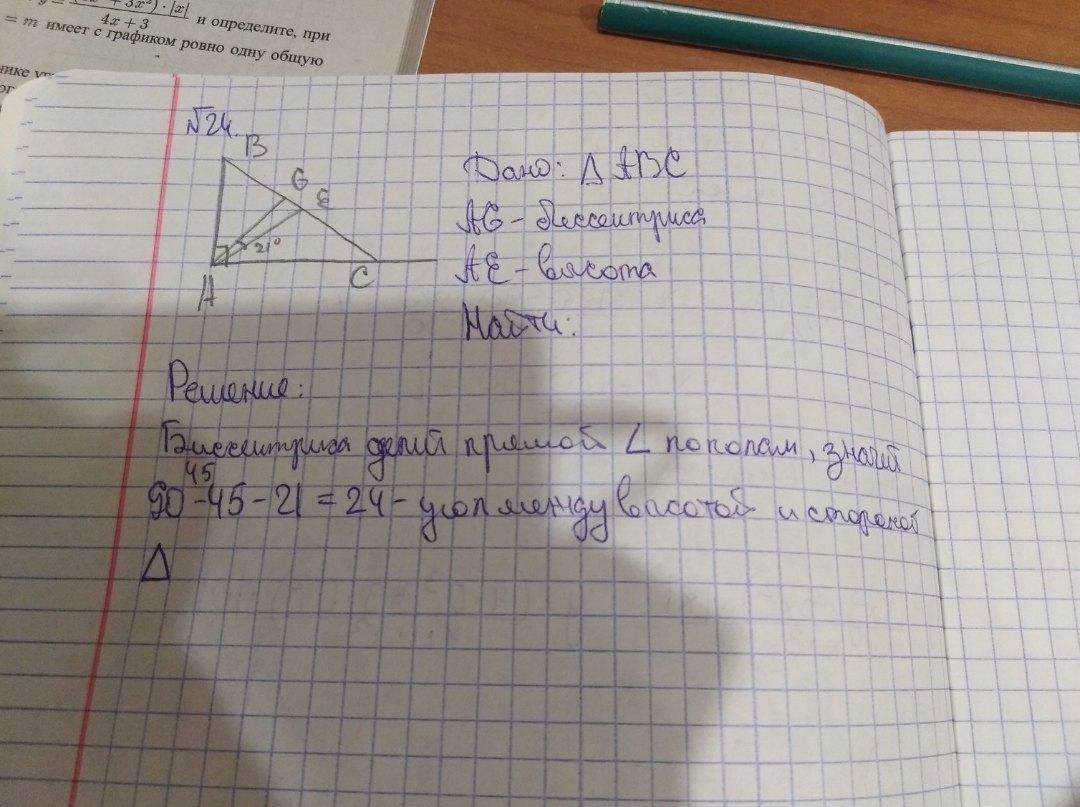 4x + 3
и определите, при
= m имеет с графиком ровно одну общую
№24.
B
G
E
21°
A
C
Дано: Δ ABC
AG - биссектриса
AE - высота
Найти:
Решение:
Биссектриса делит прямой ∠ пополам, значит
45
90 - 45 - 21 = 24 - угол между высотой и стороной
Δ